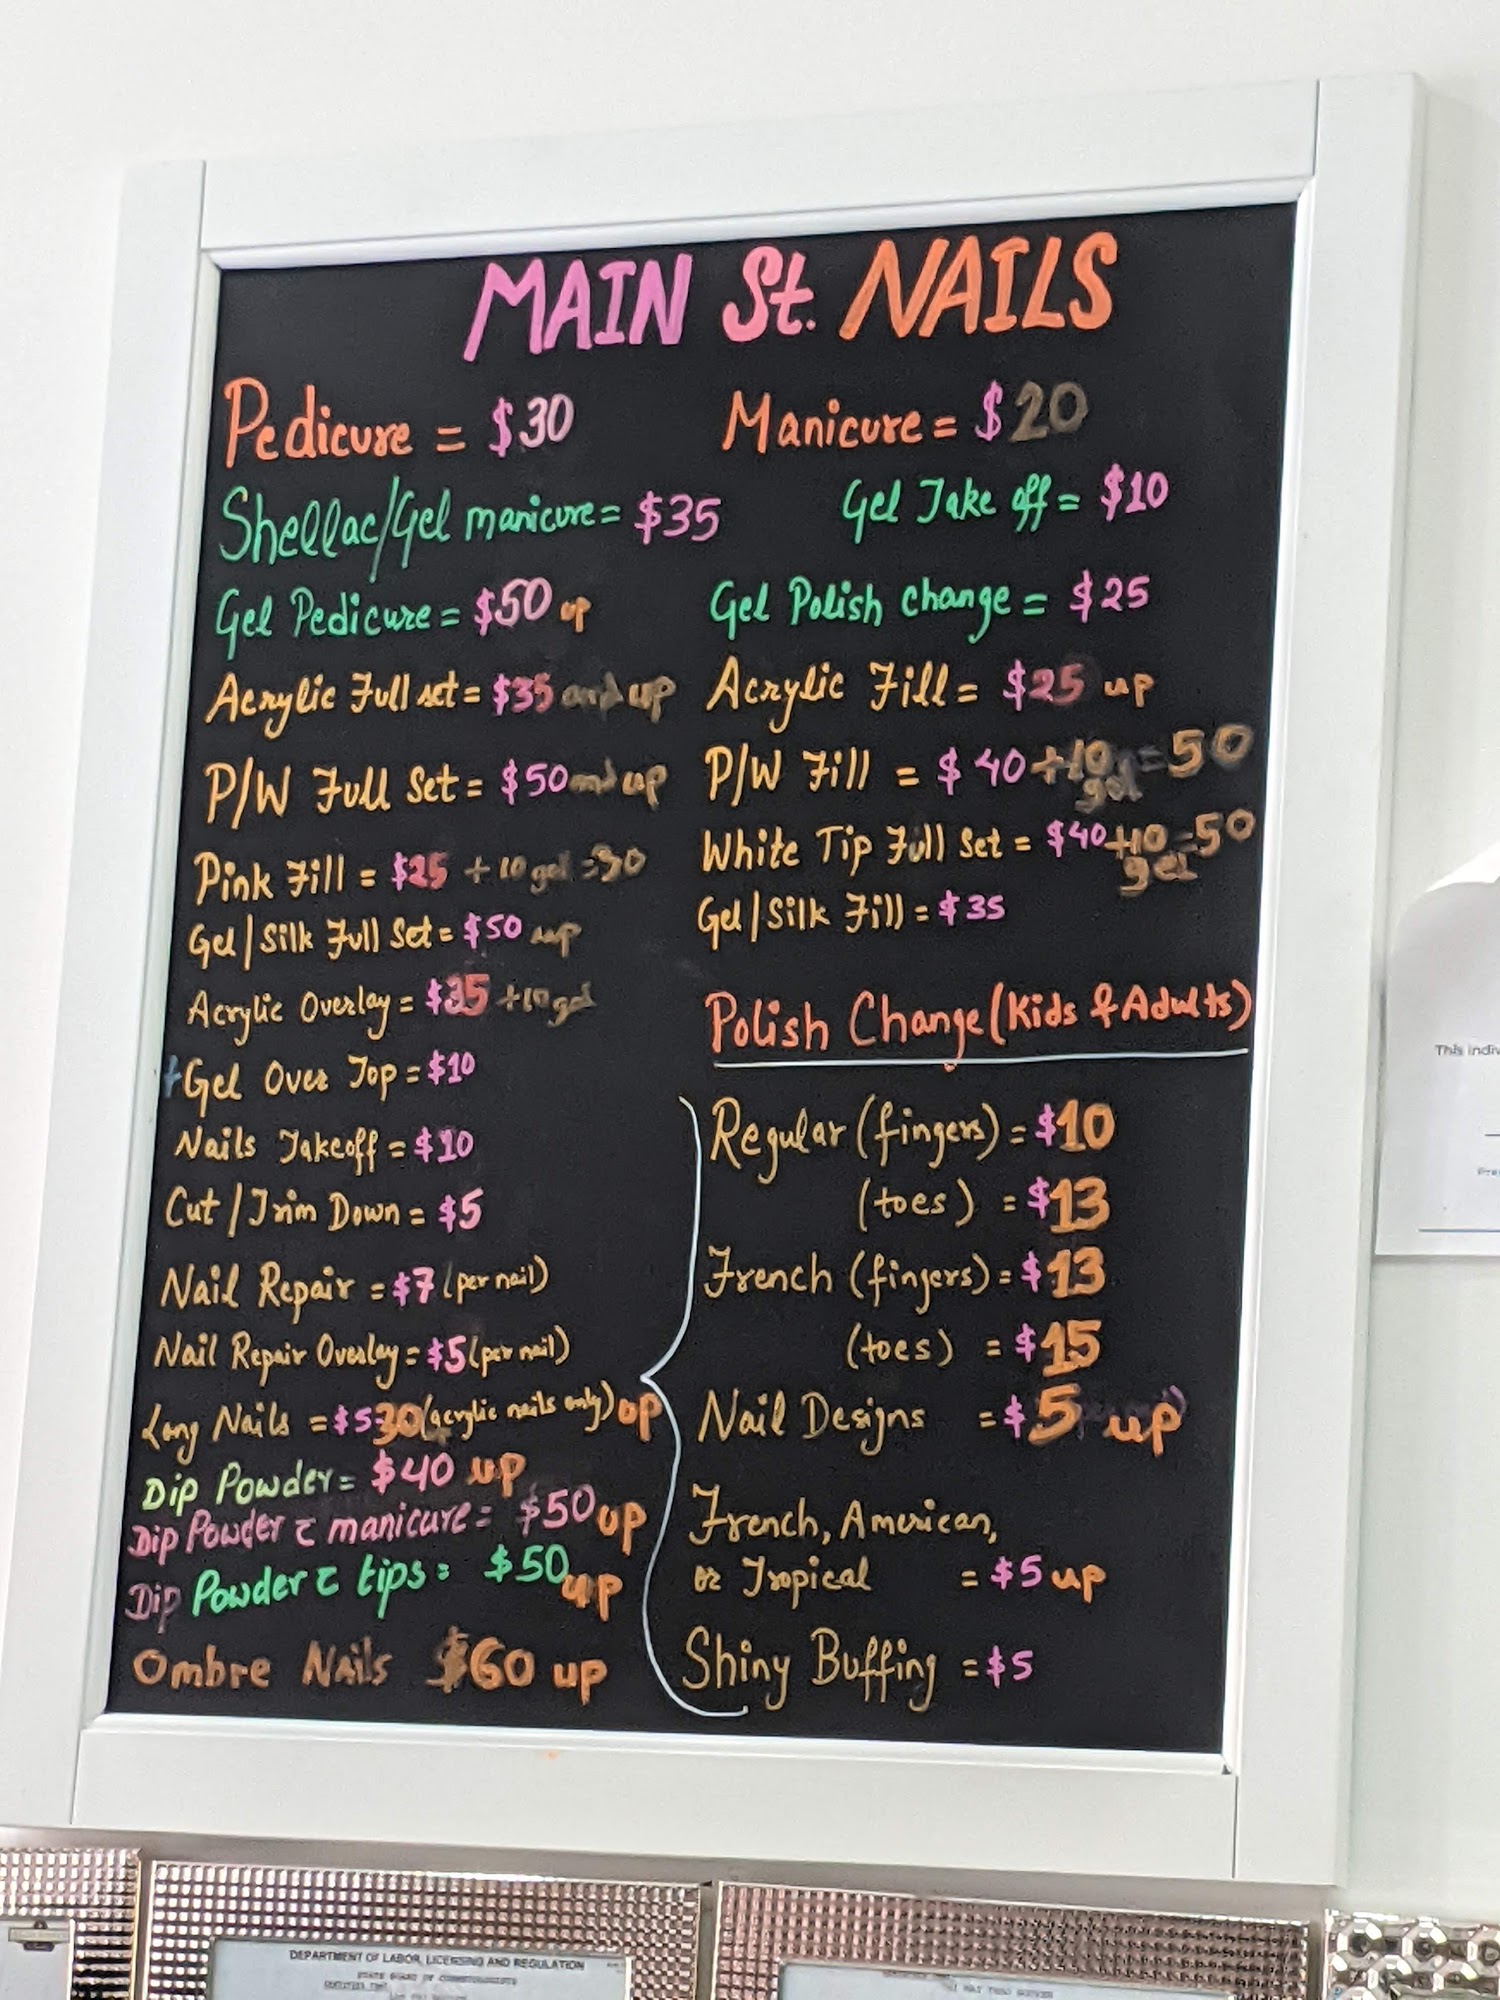 MAIN St. NAILS
Pedicure = $30
Manicure = $20
Shellac/Gel manicure = $35
Gel Take off = $10
Gel Pedicure = $50 up
Gel Polish change = $25
Acrylic Full set = $35 and up
Acrylic Fill = $25 up
P/W Full Set = $50 and up
P/W Fill = $40 +10 gel = 50
Pink Fill = $25 + 10 gel =
White Tip Full Set = $40 +10 gel = 50
Gel/Silk Full Set = $50 up
Gel/Silk Fill = $35
Acrylic Overlay = $35 +10 gel
+Gel Over Top = $10
Nails Takeoff = $10
Cut/Trim Down = $5
Nail Repair = $7 (per nail)
Nail Repair Overlay = $5 (per nail)
Long Nails = $5-30 (acrylic nails only) up
Dip Powder = $40 up
Dip Powder c manicure = $50 up
Dip Powder c tips = $50 up
Ombre Nails $60 up
Polish Change (Kids & Adults)
Regular (fingers) = $10
(toes) = $13
French (fingers) = $13
(toes) = $15
Nail Designs = $5 up
French, American,
or Tropical = $5 up
Shiny Buffing = $5
This indiv
DEPARTMENT OF LABOR, LICENSING AND REGULATION
STATE BOARD OF COSMETOLOGISTS